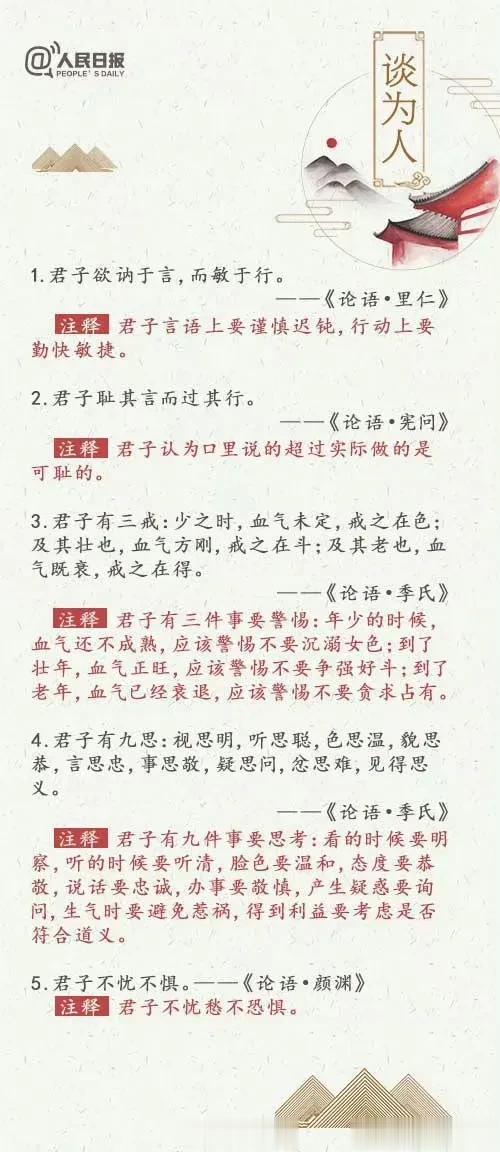 @人民日报
PEOPLE'S DAILY
谈为人
1.君子欲讷于言,而敏于行。
——《论语•里仁》
注释 君子言语上要谨慎迟钝,行动上要
勤快敏捷。
2.君子耻其言而过其行。
——《论语•宪问》
注释 君子认为口里说的超过实际做的是
可耻的。
3.君子有三戒:少之时,血气未定,戒之在色;
及其壮也,血气方刚,戒之在斗;及其老也,血
气既衰,戒之在得。
——《论语•季氏》
注释 君子有三件事要警惕:年少的时候,
血气还不成熟,应该警惕不要沉溺女色;到了
壮年,血气正旺,应该警惕不要争强好斗;到了
老年,血气已经衰退,应该警惕不要贪求占有。
4.君子有九思:视思明,听思聪,色思温,貌思
恭,言思忠,事思敬,疑思问,忿思难,见得思
义。
——《论语•季氏》
注释 君子有九件事要思考:看的时候要明
察,听的时候要听清,脸色要温和,态度要恭
敬,说话要忠诚,办事要敬慎,产生疑惑要询
问,生气时要避免惹祸,得到利益要考虑是否
符合道义。
5.君子不忧不惧。——《论语•颜渊》
注释 君子不忧愁不恐惧。